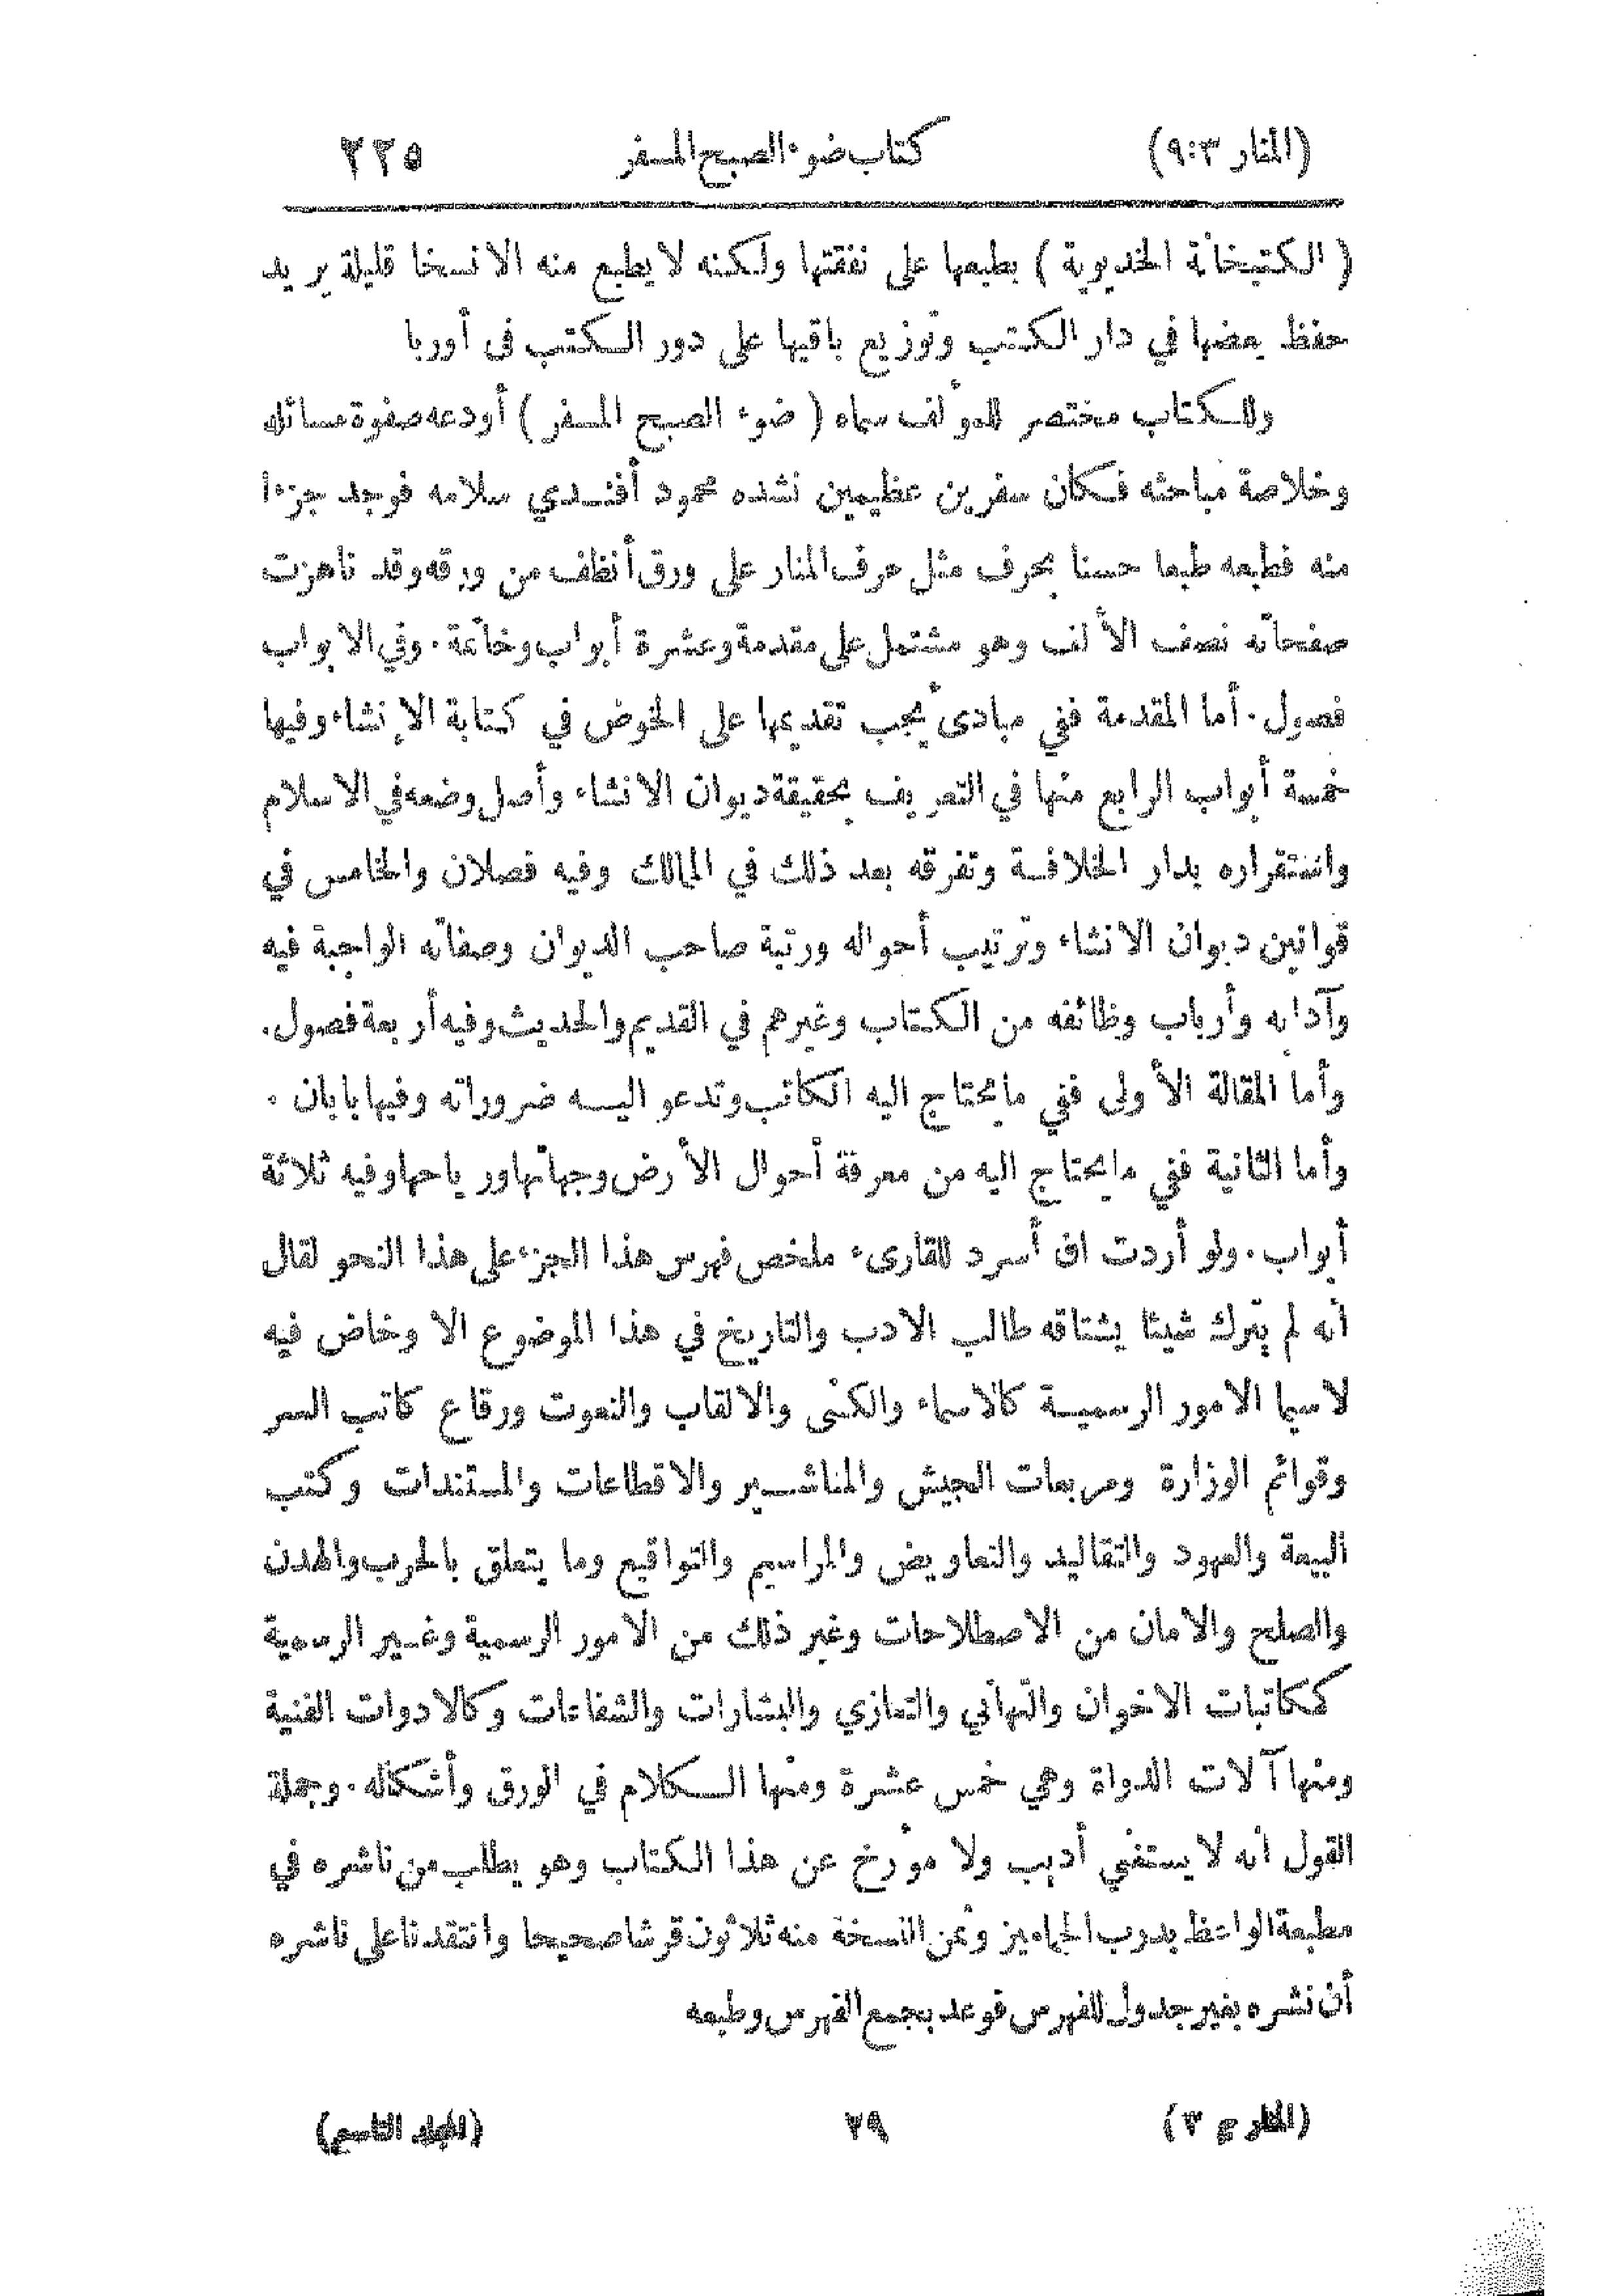 (المنار ٩:٣) كتاب ضوء الصبح المسفر ٢٢٥
( الكتبخانة الخديوية ) بطبعها على نفقتها ولكنه لا يطبع منه الا نسخا قليلة يريد
حفظ بعضها في دار الكتب وتوزيع باقيها على دور الكتب في أوربا
وللكتاب مختصر للمؤلف سماه ( ضوء الصبح المسفر ) أودعه صفوة مسائله
وخلاصة مباحثه فكان سفرين عظيمين نشده محمود أفندي سلامه فوجد جزءا
منه فطبعه طبعا حسنا بحرف مثل حرف المنار على ورق أنظف من ورقه وقد ناهزت
صفحاته نصف الألف وهو مشتمل على مقدمة وعشرة أبواب وخاتمة . وفي الابواب
فصول . أما المقدمة ففي مبادئ يجب تقديمها على الخوض في كتابة الإنشاء وفيها
خمسة أبواب الرابع منها في التعريف بحقيقة ديوان الانشاء وأصل وضعه في الاسلام
واستقراره بدار الخلافة وتفرقه بعد ذلك في الممالك وفيه فصلان والخامس في
قوانين ديوان الانشاء وترتيب أحواله ورتبة صاحب الديوان وصفاته الواجبة فيه
وآدابه وأرباب وظائفه من الكتاب وغيرهم في القديم والحديث وفيه أربعة فصول .
وأما المقالة الأولى ففي ما يحتاج اليه الكاتب وتدعو اليه ضروراته وفيها بابان .
وأما الثانية ففي ما يحتاج اليه من معرفة أحوال الأرض وجهاتها ورياحها وفيه ثلاثة
أبواب . ولو أردت ان أسرد للقارىء ملخص فهرس هذا الجزء على هذا النحو لقال
انه لم يترك شيئا يشتاقه طالب الادب والتاريخ في هذا الموضوع الا وخاض فيه
لاسيما الامور الرسمية كالاسماء والكنى والالقاب والنعوت ورقاع كاتب السر
وقوائم الوزارة ومربعات الجيش والمناشير والاقطاعات والمستندات وكتب
البيعة والعهود والتقاليد والتعاويض والمراسيم والتواقيع وما يتعلق بالحرب والهدن
والصلح والامان من الاصطلاحات وغير ذلك من الامور الرسمية وغير الرسمية
ككاتبات الاخوان والتهاني والتعازي والبشارات والشفاعات وكالادوات الفنية
ومنها آلات الدواة وهي خمس عشرة ومنها الكلام في الورق وأشكاله . وجملة
القول انه لا يستغني أديب ولا مؤرخ عن هذا الكتاب وهو يطلب من ناشره في
مطبعة الواعظ بدرب الجماميز وثمن النسخة منه ثلاثون قرشا صحيحا وانتقدنا على ناشره
أن نشره بغير جدول للفهرس فوعد بجمع الفهرس وطبعه
(المنار ج ٣) ٢٩ (المجلد التاسع)